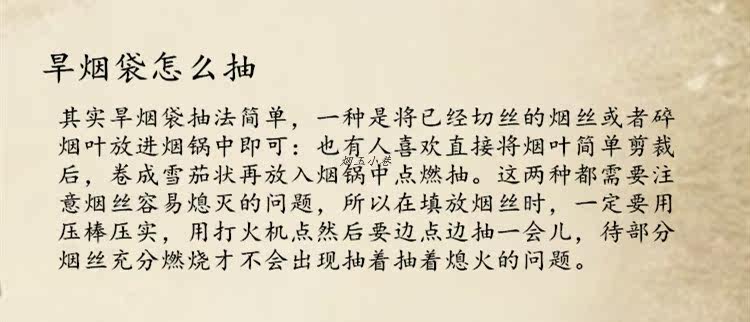 旱烟袋怎么抽
其实旱烟袋抽法简单，一种是将已经切丝的烟丝或者碎
烟叶放进烟锅中即可：也有人喜欢直接将烟叶简单剪裁
烟玉小巷
后，卷成雪茄状再放入烟锅中点燃抽。这两种都需要注
意烟丝容易熄灭的问题，所以在填放烟丝时，一定要用
压棒压实，用打火机点然后要边点边抽一会儿，待部分
烟丝充分燃烧才不会出现抽着抽着熄火的问题。